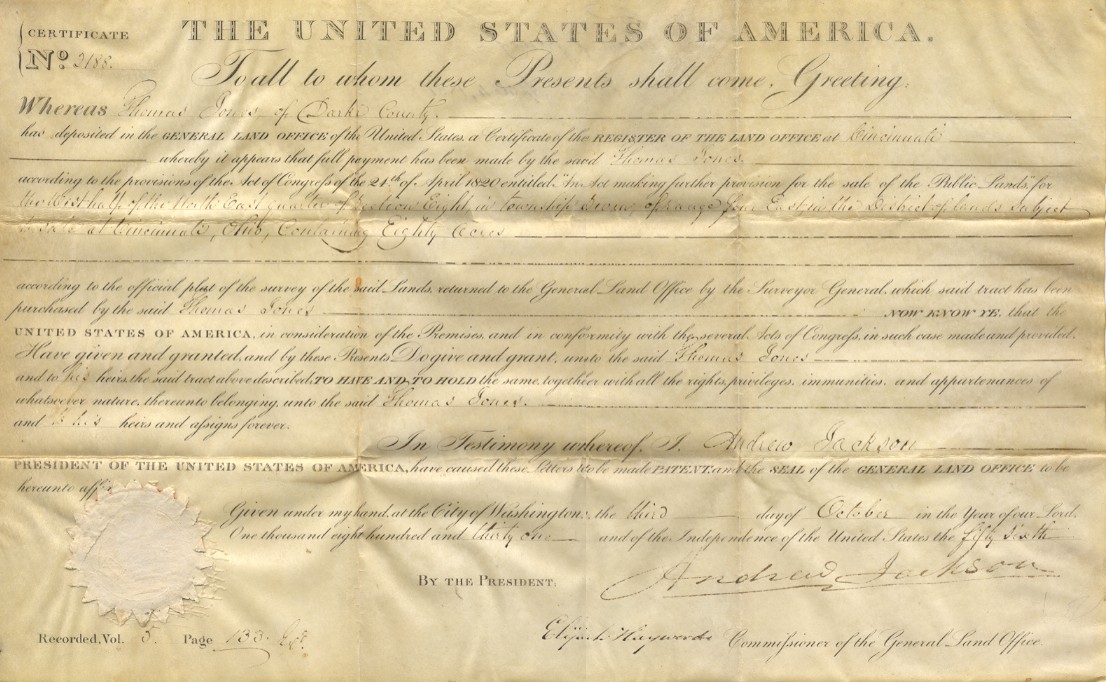 CERTIFICATE
No. 2188.
THE UNITED STATES OF AMERICA.
To all to whom these Presents shall come, Greeting:
Whereas Thomas Jones, of Darke County.
has deposited in the GENERAL LAND OFFICE of the United States, a Certificate of the REGISTER OF THE LAND OFFICE at Cincinnati
whereby it appears that full payment has been made by the said Thomas Jones
according to the provisions of the Act of Congress of the 24th of April 1820 entitled "An Act making further provision for the sale of the Public Lands," for
the West half of the North East quarter of Section Eight in township of range Four East in the District of lands Subject
to sale at Cincinnati, Ohio, Containing Eighty Acres
according to the official plat of the survey of the said Lands, returned to the General Land Office by the Surveyor General, which said tract has been
purchased by the said Thomas Jones NOW KNOW YE, that the
UNITED STATES OF AMERICA, in consideration of the Premises, and in conformity with the several Acts of Congress, in such case made and provided,
Have given and granted, and by these Presents Do give and grant, unto the said Thomas Jones
and to his heirs, the said tract above described, TO HAVE AND TO HOLD the same, together with all the rights, privileges, immunities, and appurtenances of
whatsoever nature, thereunto belonging, unto the said Thomas Jones.
and to his heirs and assigns forever.
In Testimony whereof, I, Andrew Jackson
PRESIDENT OF THE UNITED STATES OF AMERICA, have caused these Letters to be made PATENT, and the SEAL of the GENERAL LAND OFFICE to be
hereunto
Given under my hand, at the City of Washington, the third day of October in the Year of our Lord
One thousand eight hundred and thirty one and of the Independence of the United States the fifty sixth
Andrew Jackson
BY THE PRESIDENT:
Elijah Haywood Commissioner of the General Land Office
Recorded, Vol. 5. Page 133